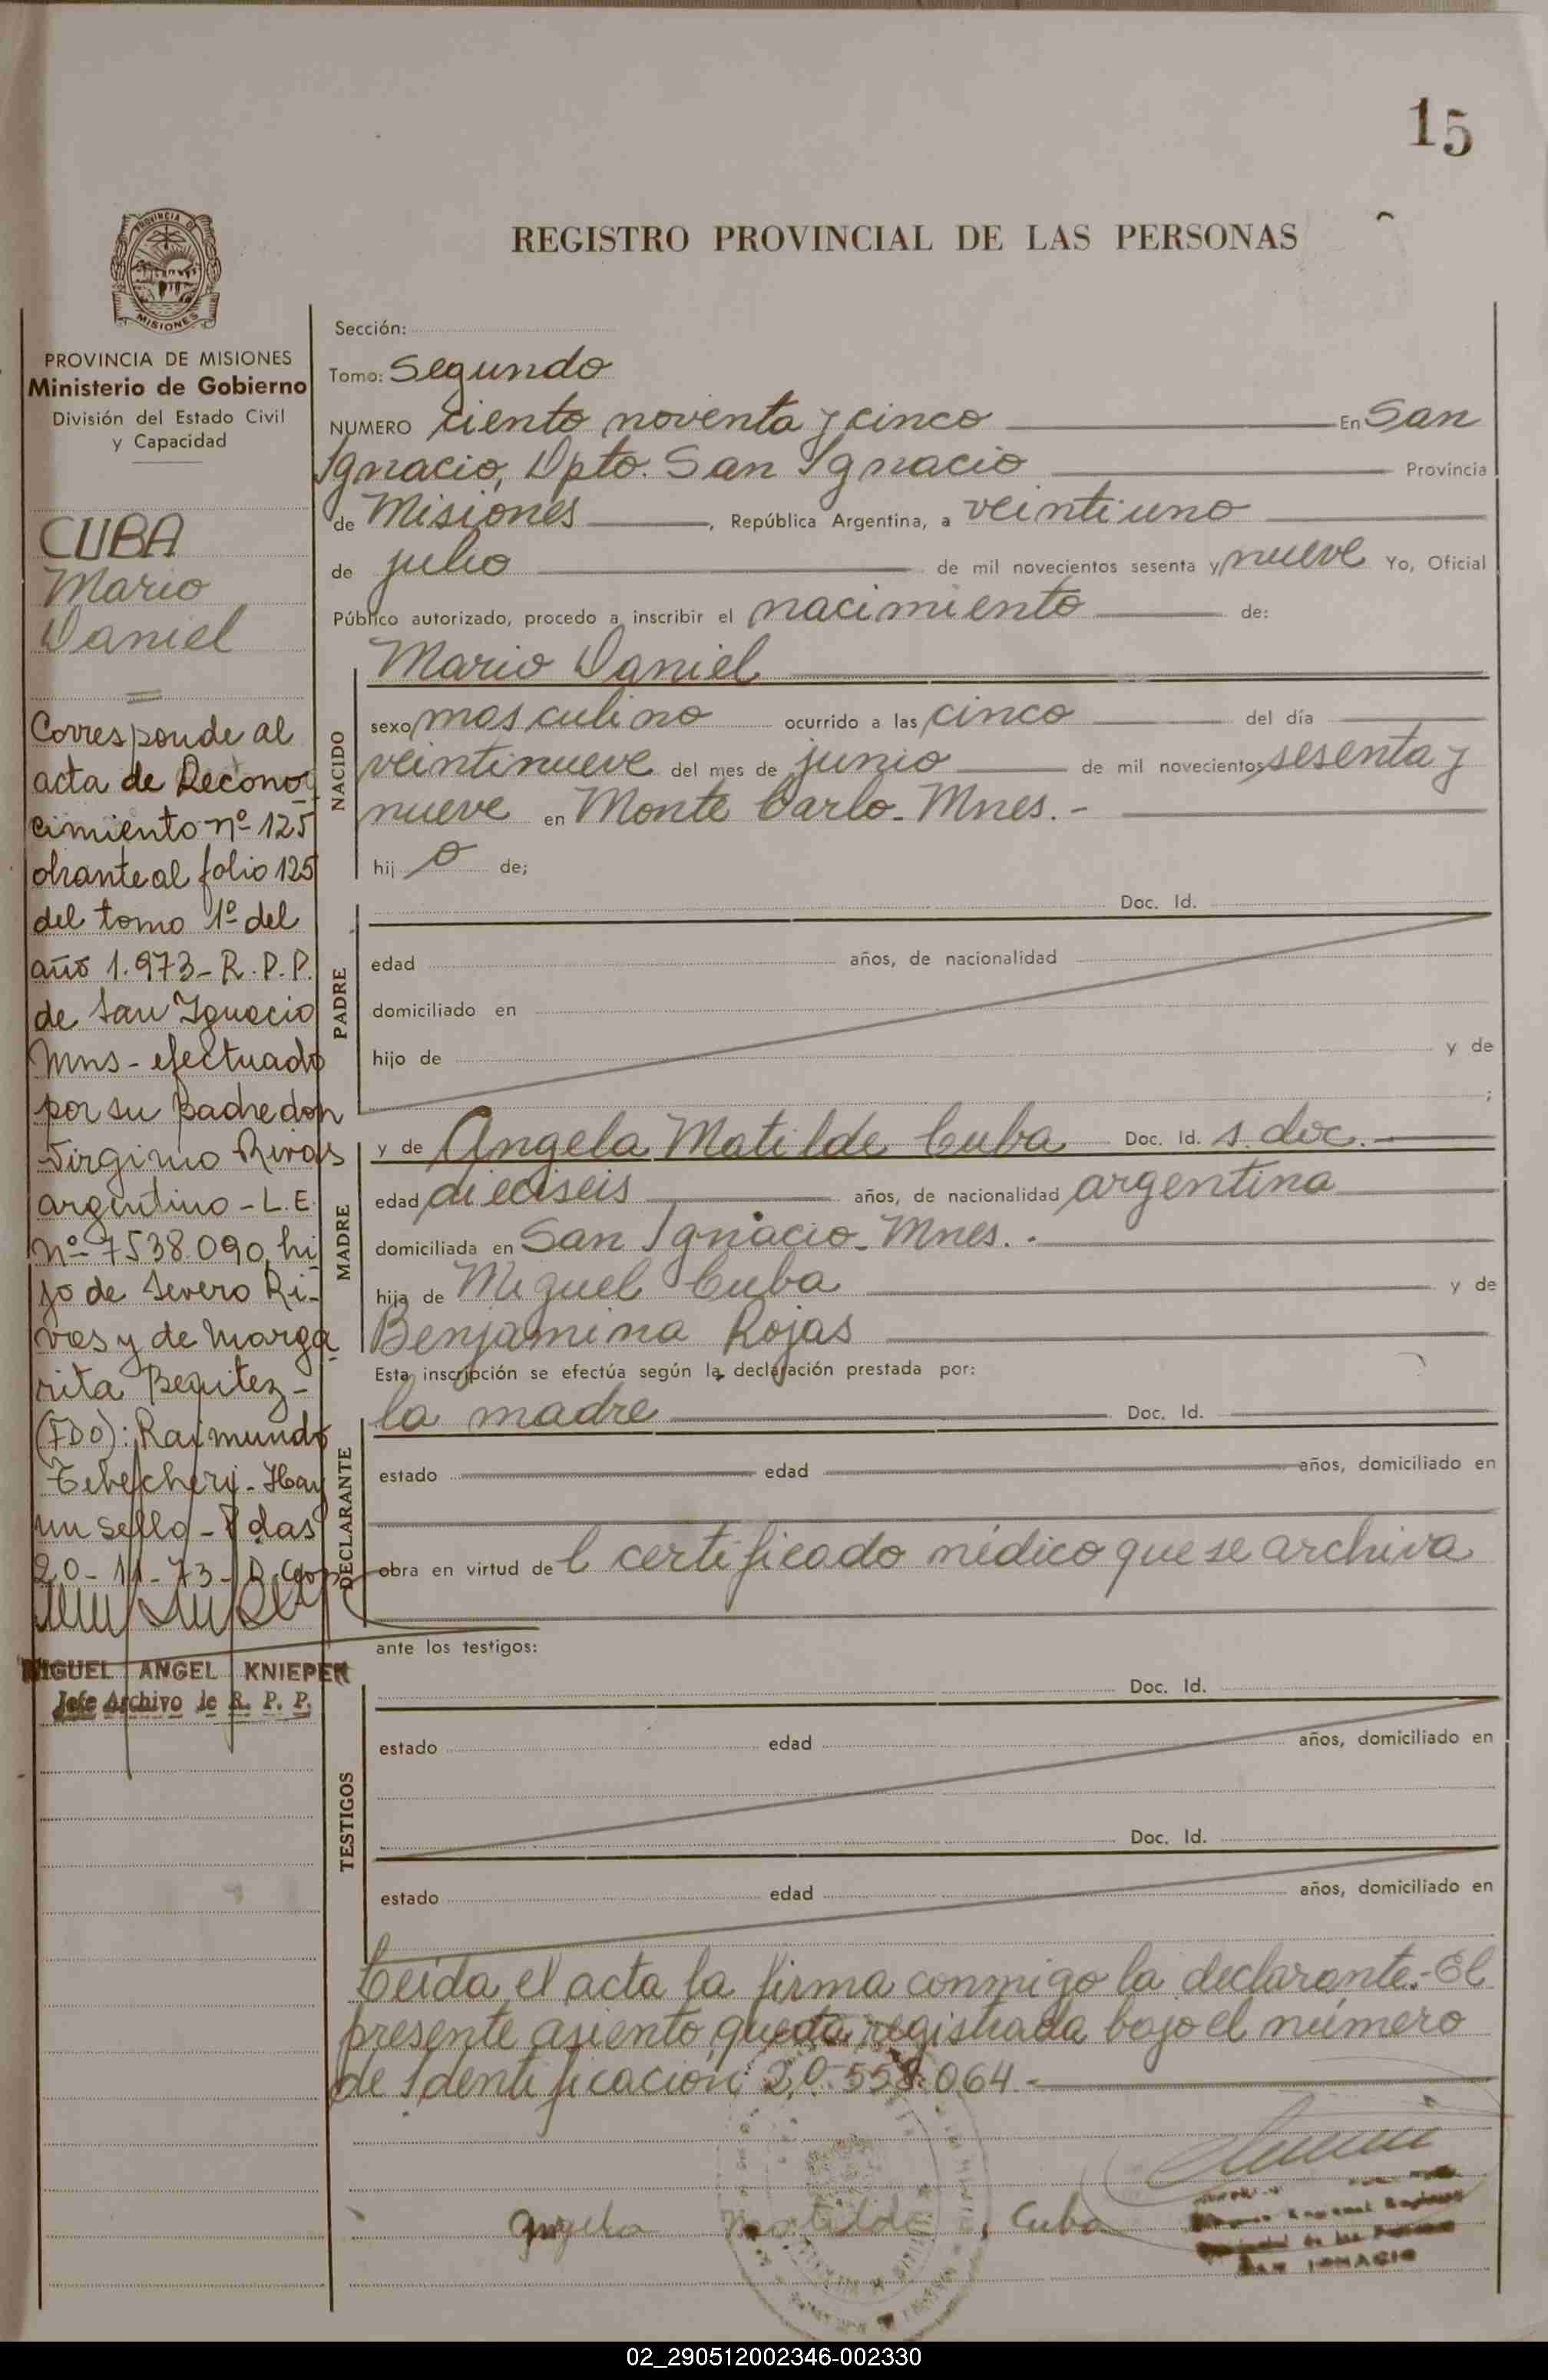 15
REGISTRO PROVINCIAL DE LAS PERSONAS
PROVINCIA DE
MISIONES
PROVINCIA DE MISIONES
Ministerio de Gobierno
División del Estado Civil
y Capacidad
CUBA
Mario
Daniel
Corresponde al
acta de Recono-
cimiento nº 125
obrante al folio 125
del tomo 1º del
año 1.973- R.P.P.
de San Ignacio
Mns - efectuado
por su padre don
Virginio Rivas
argentino - L.E.
Nº 7538.090, hi
jo de Severo Ri-
vas y de Marga
rita Benitez -
(FDO): Raimundo
Hay
un sello - Pdas
20-11-73-
MIGUEL ANGEL KNIEPER
Jefe Archivo de R. P. P.
Sección:
Tomo: Segundo
NUMERO ciento noventa y cinco En San
Ignacio, Dpto. San Ignacio Provincia
de Misiones, República Argentina, a veintiuno
de julio de mil novecientos sesenta y nueve Yo, Oficial
Público autorizado, procedo a inscribir el nacimiento de:
Mario Daniel
NACIDO
sexo masculino ocurrido a las cinco del día
veintinueve del mes de junio de mil novecientos sesenta y
nueve en Monte Carlo - Mnes. -
hij o de;
PADRE
Doc. Id.
edad años, de nacionalidad
domiciliado en
hijo de y de
;
MADRE
y de Angela Matilde Cuba Doc. Id. s. doc. -
edad dieciseis años, de nacionalidad argentina
domiciliada en San Ignacio - Mnes. -
hija de Miguel Cuba y de
Benjamina Rojas
Esta inscripción se efectúa según la declaración prestada por:
DECLARANTE
la madre Doc. Id.
estado edad años, domiciliado en
obra en virtud de l certificado médico que se archiva
ante los testigos:
TESTIGOS
Doc. Id.
estado edad años, domiciliado en
Doc. Id.
estado edad años, domiciliado en
Leida el acta la firma conmigo la declarante.- El
presente asiento queda registrada bajo el número
de Identificación: 20.558.064.-
Angela Matilde Cuba
SAN IGNACIO
02_290512002346-002330